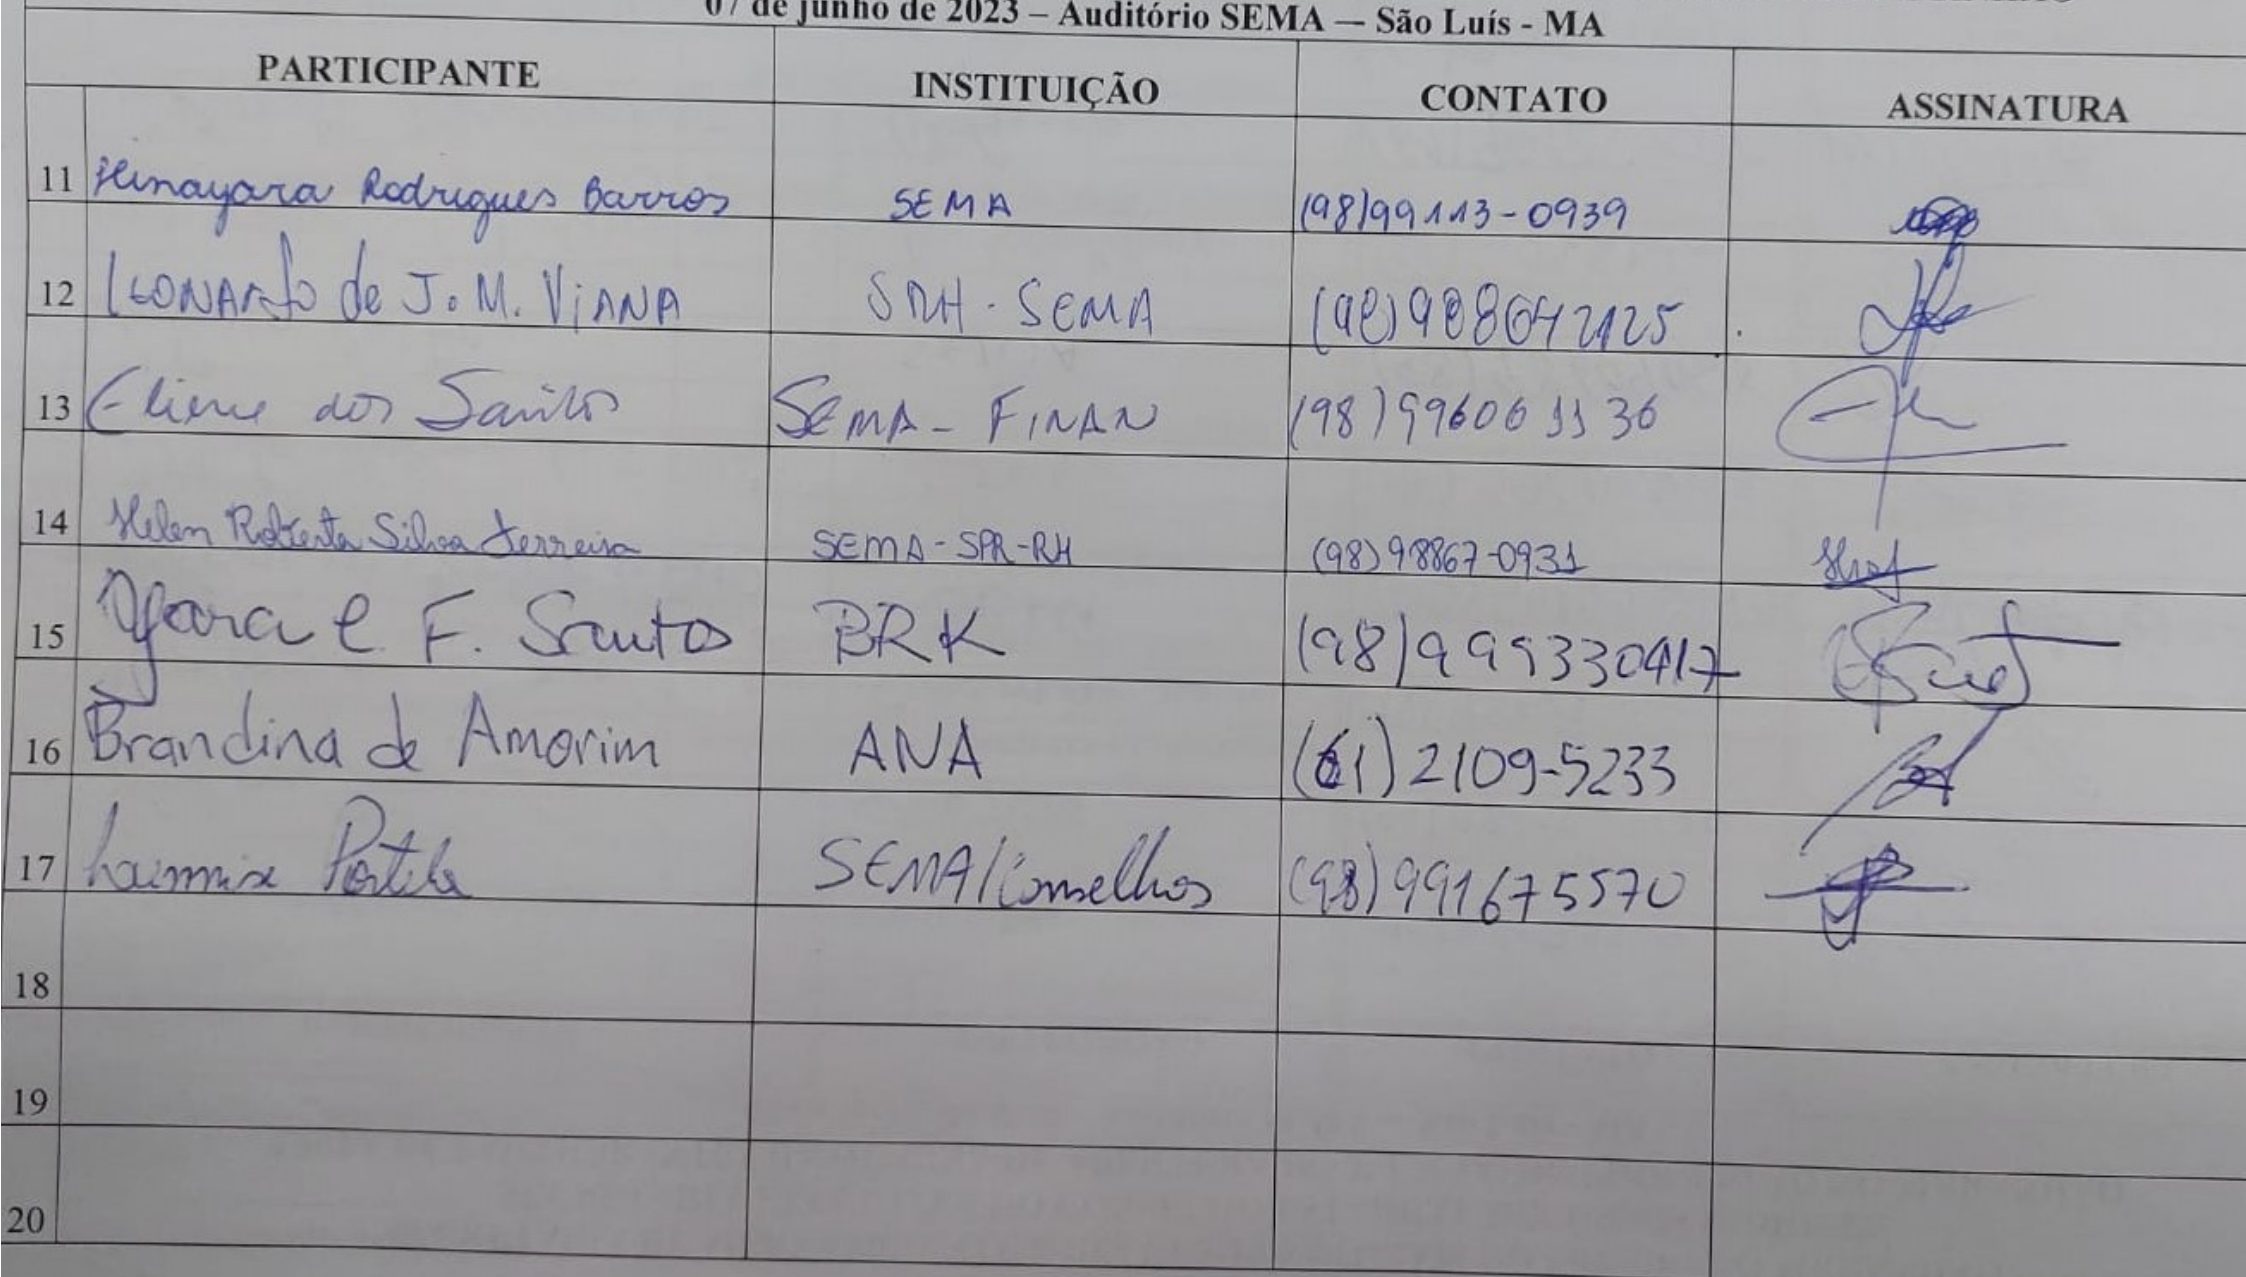 07 de junho de 2023 – Auditório SEMA — São Luís - MA
PARTICIPANTE INSTITUIÇÃO CONTATO ASSINATURA
11 Hinayara Rodrigues Barros SEMA (98)99113-0939
12 LEONARdo de J. M. ViANA SRH - SEMA (98)988642125
13 Eliene dos Santos SEMA - FINAN (98)996061136
14 Helen Roberta Silva Ferreira SEMA-SPR-RH (98)98867-0931
15 Yara C F. Santos BRK (98)999330417
16 Brandina de Amorim ANA (61) 2109-5233
17 Portela SEMA/Conselhos (98)991675570
18
19
20